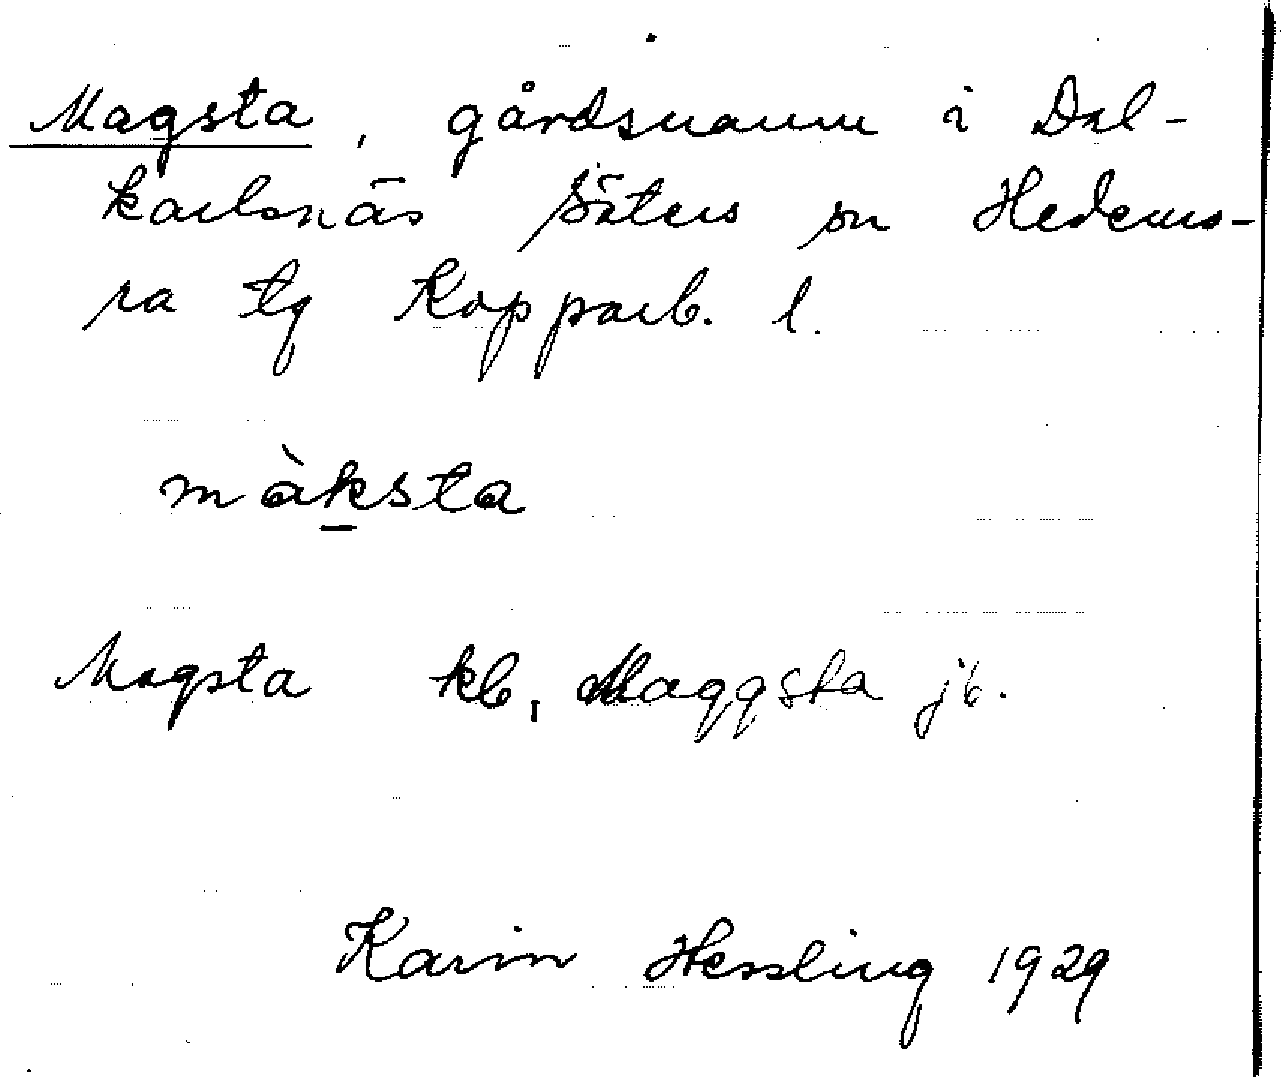 Magsta, gårdsnamn i Dal-
karlsnäs Säters sn Hedemo-
ra tg Kopparb. l.
màksta
Magsta kb, Maggsta jb.
Karin Hessling 1929